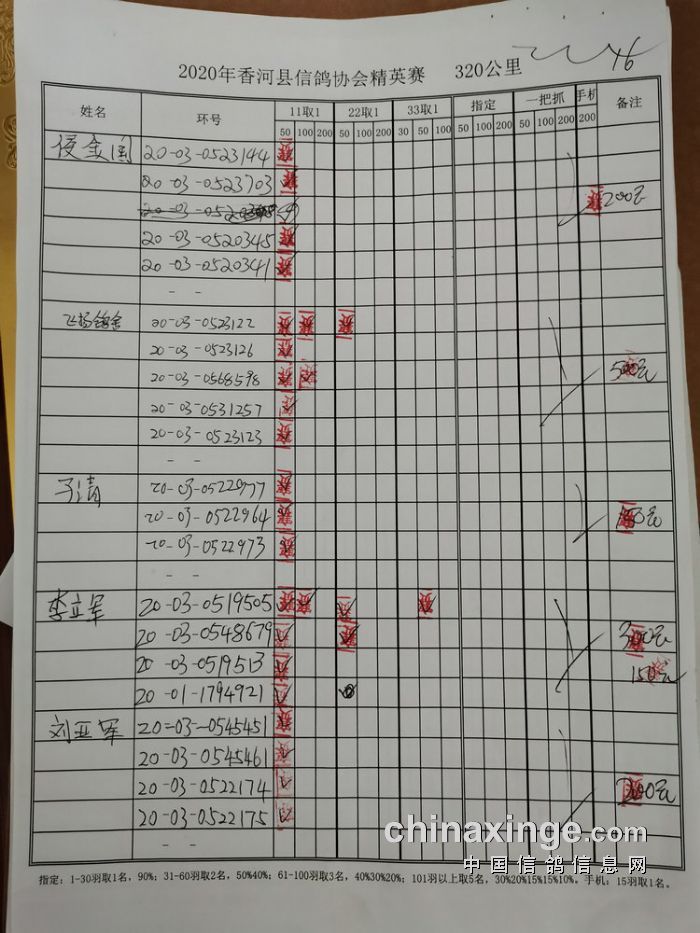 2020年香河县信鸽协会精英赛 320公里 46
姓名 环号 11取1 22取1 33取1 指定 一把抓 手机 备注
50 100 200 50 100 200 30 50 100 50 100 200 50 100 200 200
侯金国 20-03-0523144
20-03-0523703
200元
20-03-0520345
20-03-0520341
- -
飞扬鸽舍 20-03-0523122
20-03-0523126
20-03-0568598 500元
20-03-0531257
20-03-0523123
- -
子清 20-03-0522977
20-03-0522964 150元
20-03-0522973
- -
李立军 20-03-0519505
20-03-0548679 300元
20-03-0519513 150元
20-01-1794921
刘亚军 20-03-0545451
20-03-0545461
20-03-0522174 200元
20-03-0522175
- -
chinaxinge.com
中国信鸽信息网
指定：1-30羽取1名，90%；31-60羽取2名，50%40%；61-100羽取3名，40%30%20%；101羽以上取5名，30%20%15%15%10%。手机：15羽取1名。